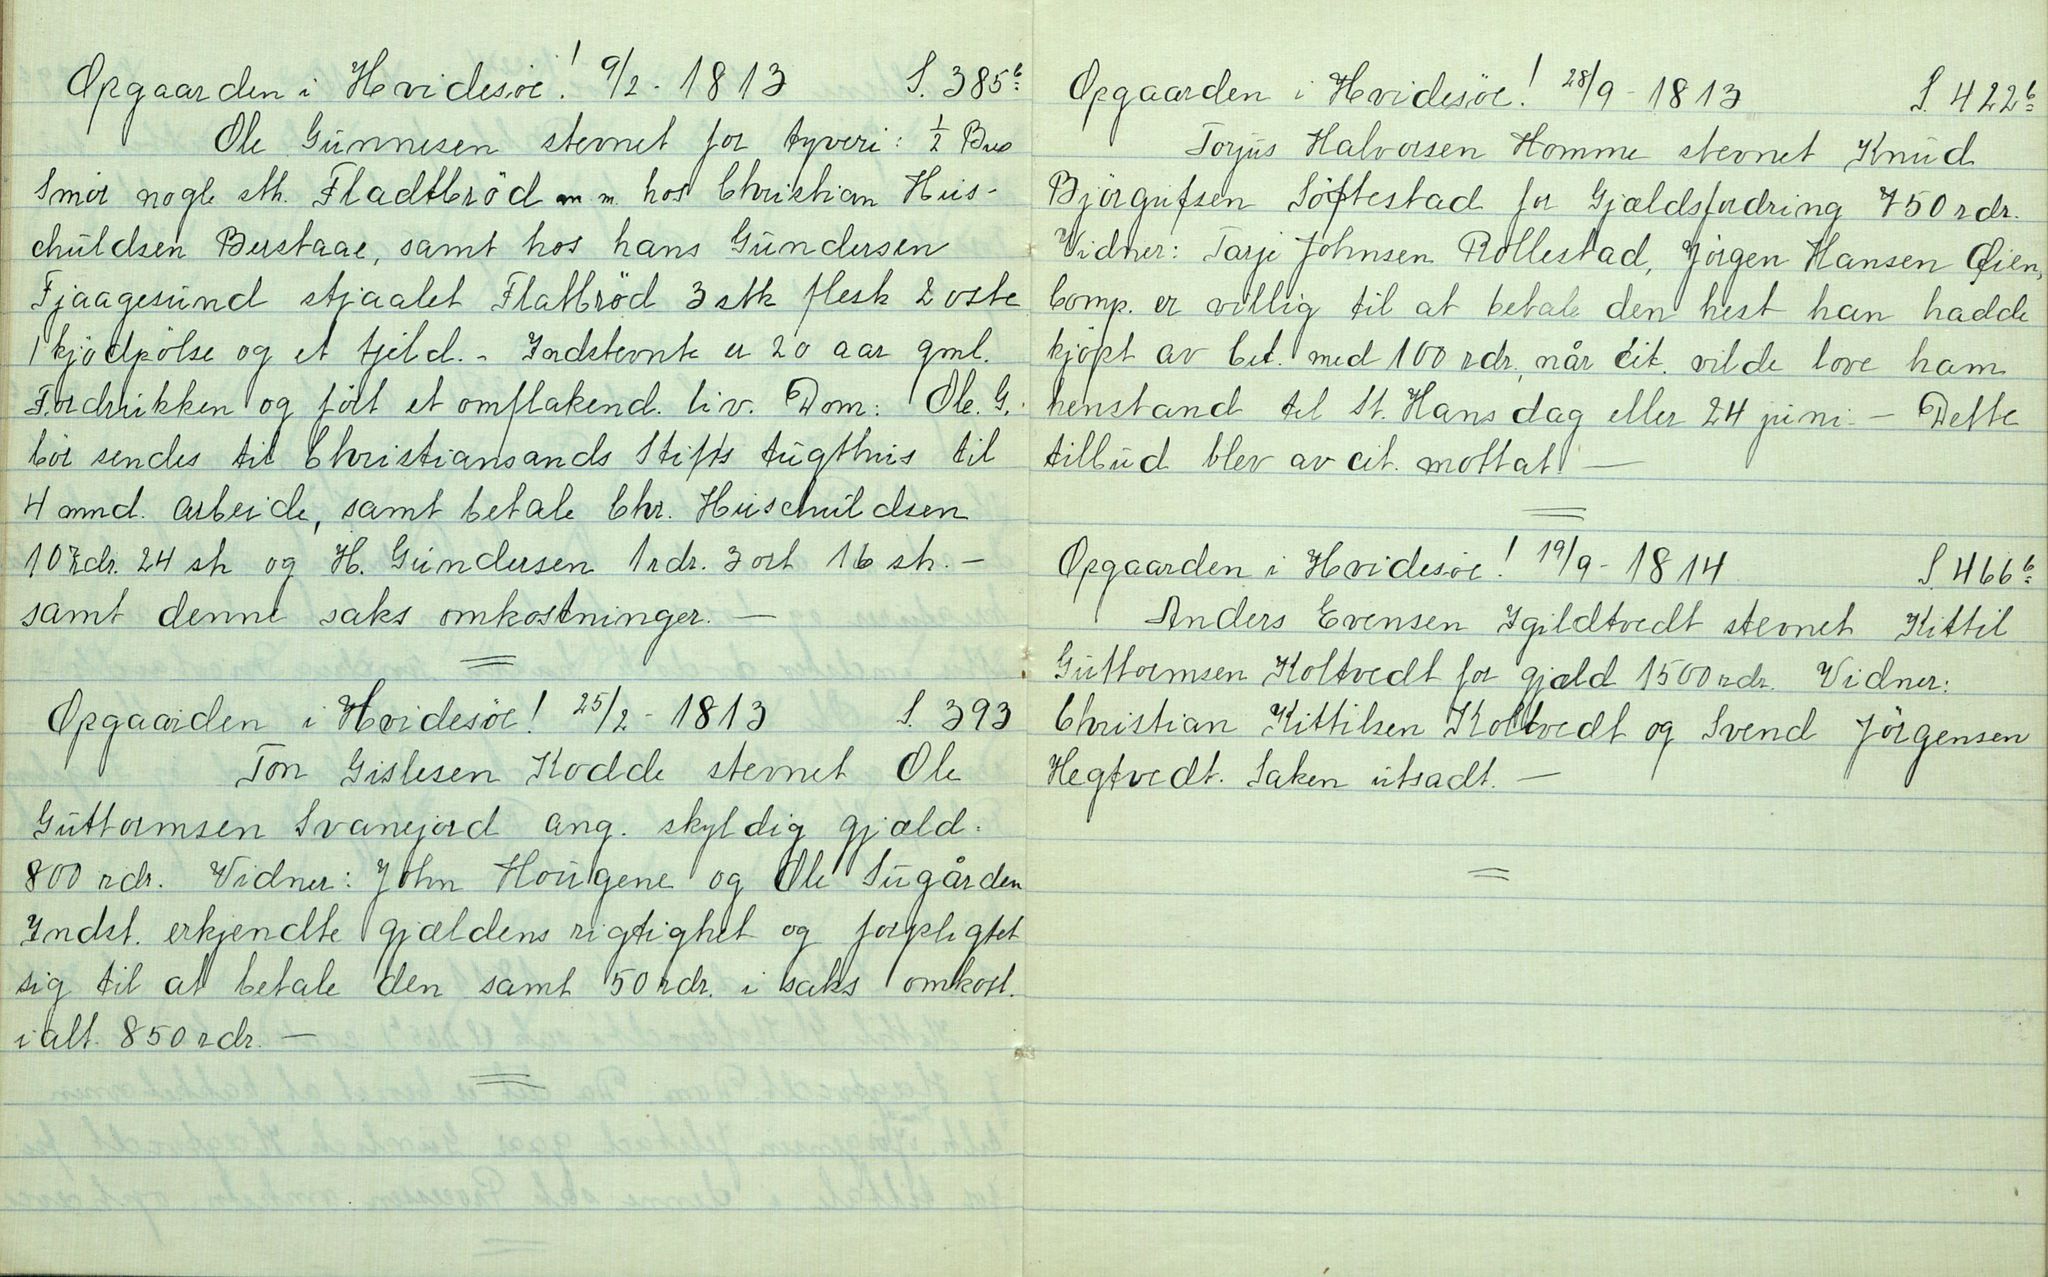 Opgaarden i Hvidesøe! 9/2 - 1813 S. 385b
Ole Gunnesen stevnet for tyveri: ½ Bup
Smör nogle stk. Fladtbröd m m. hos Christian Hus-
chuldsen Berstaae, samt hos hans Gundersen
Fjaagesund stjaalet Flatbröd 3 stk flesk 2 oste
1 kjödpölse og et fjeld. - Indstevnte er 20 aar gml.
Fordrukken og fört et omflakend. liv. Dom: Ole. G.
bör sendes til Christiansands Stifts tugthus til
4 mnd. arbeide, samt betale Chr. Huschuldsen
10 rdr. 24 sk og H. Gundersen 1 rdr. 3 ort 16 sk. -
samt denne saks omkostninger. —
Opgaarden i Hvidesöe! 25/2 - 1813 S. 393
Ton Gislesen Kodde stevnet Ole
Guttormsen Svanejord ang. skyldig gjæld.
800 rdr. Vidner: John Hougene og Ole Sugården
Indst. erkjendte gjældens rigtighet og forpligtet
sig til at betale den samt 50 rdr. i saks omkost.
i alt. 850 rdr. —
Opgaarden i Hvidesöe! 28/9 - 1813 S. 422b
Torjus Halvorsen Homme stevnet Knud
Björgufsen Söftestad for Gjældsfordring 750 rdr.
Vidner: Tarje Johnsen Rollestad, Jörgen Hansen Öien,
Comp. er villig til at betale den hest han hadde
kjöpt av Cit. med 100 rdr., når cit. vilde love ham
henstand til St. Hans dag eller 24 juni. — Dette
tilbud blev av cit. mottat. —
Opgaarden i Hvidesöe! 19/9 - 1814 S. 466b
Anders Evensen Igildtvedt stevnet Kittil
Guttormsen Koltvedt for gjæld 1500 rdr. Vidner:
Christian Kittilsen Koltvedt og Svend Jörgensen
Hegtvedt. Saken utsadt. —